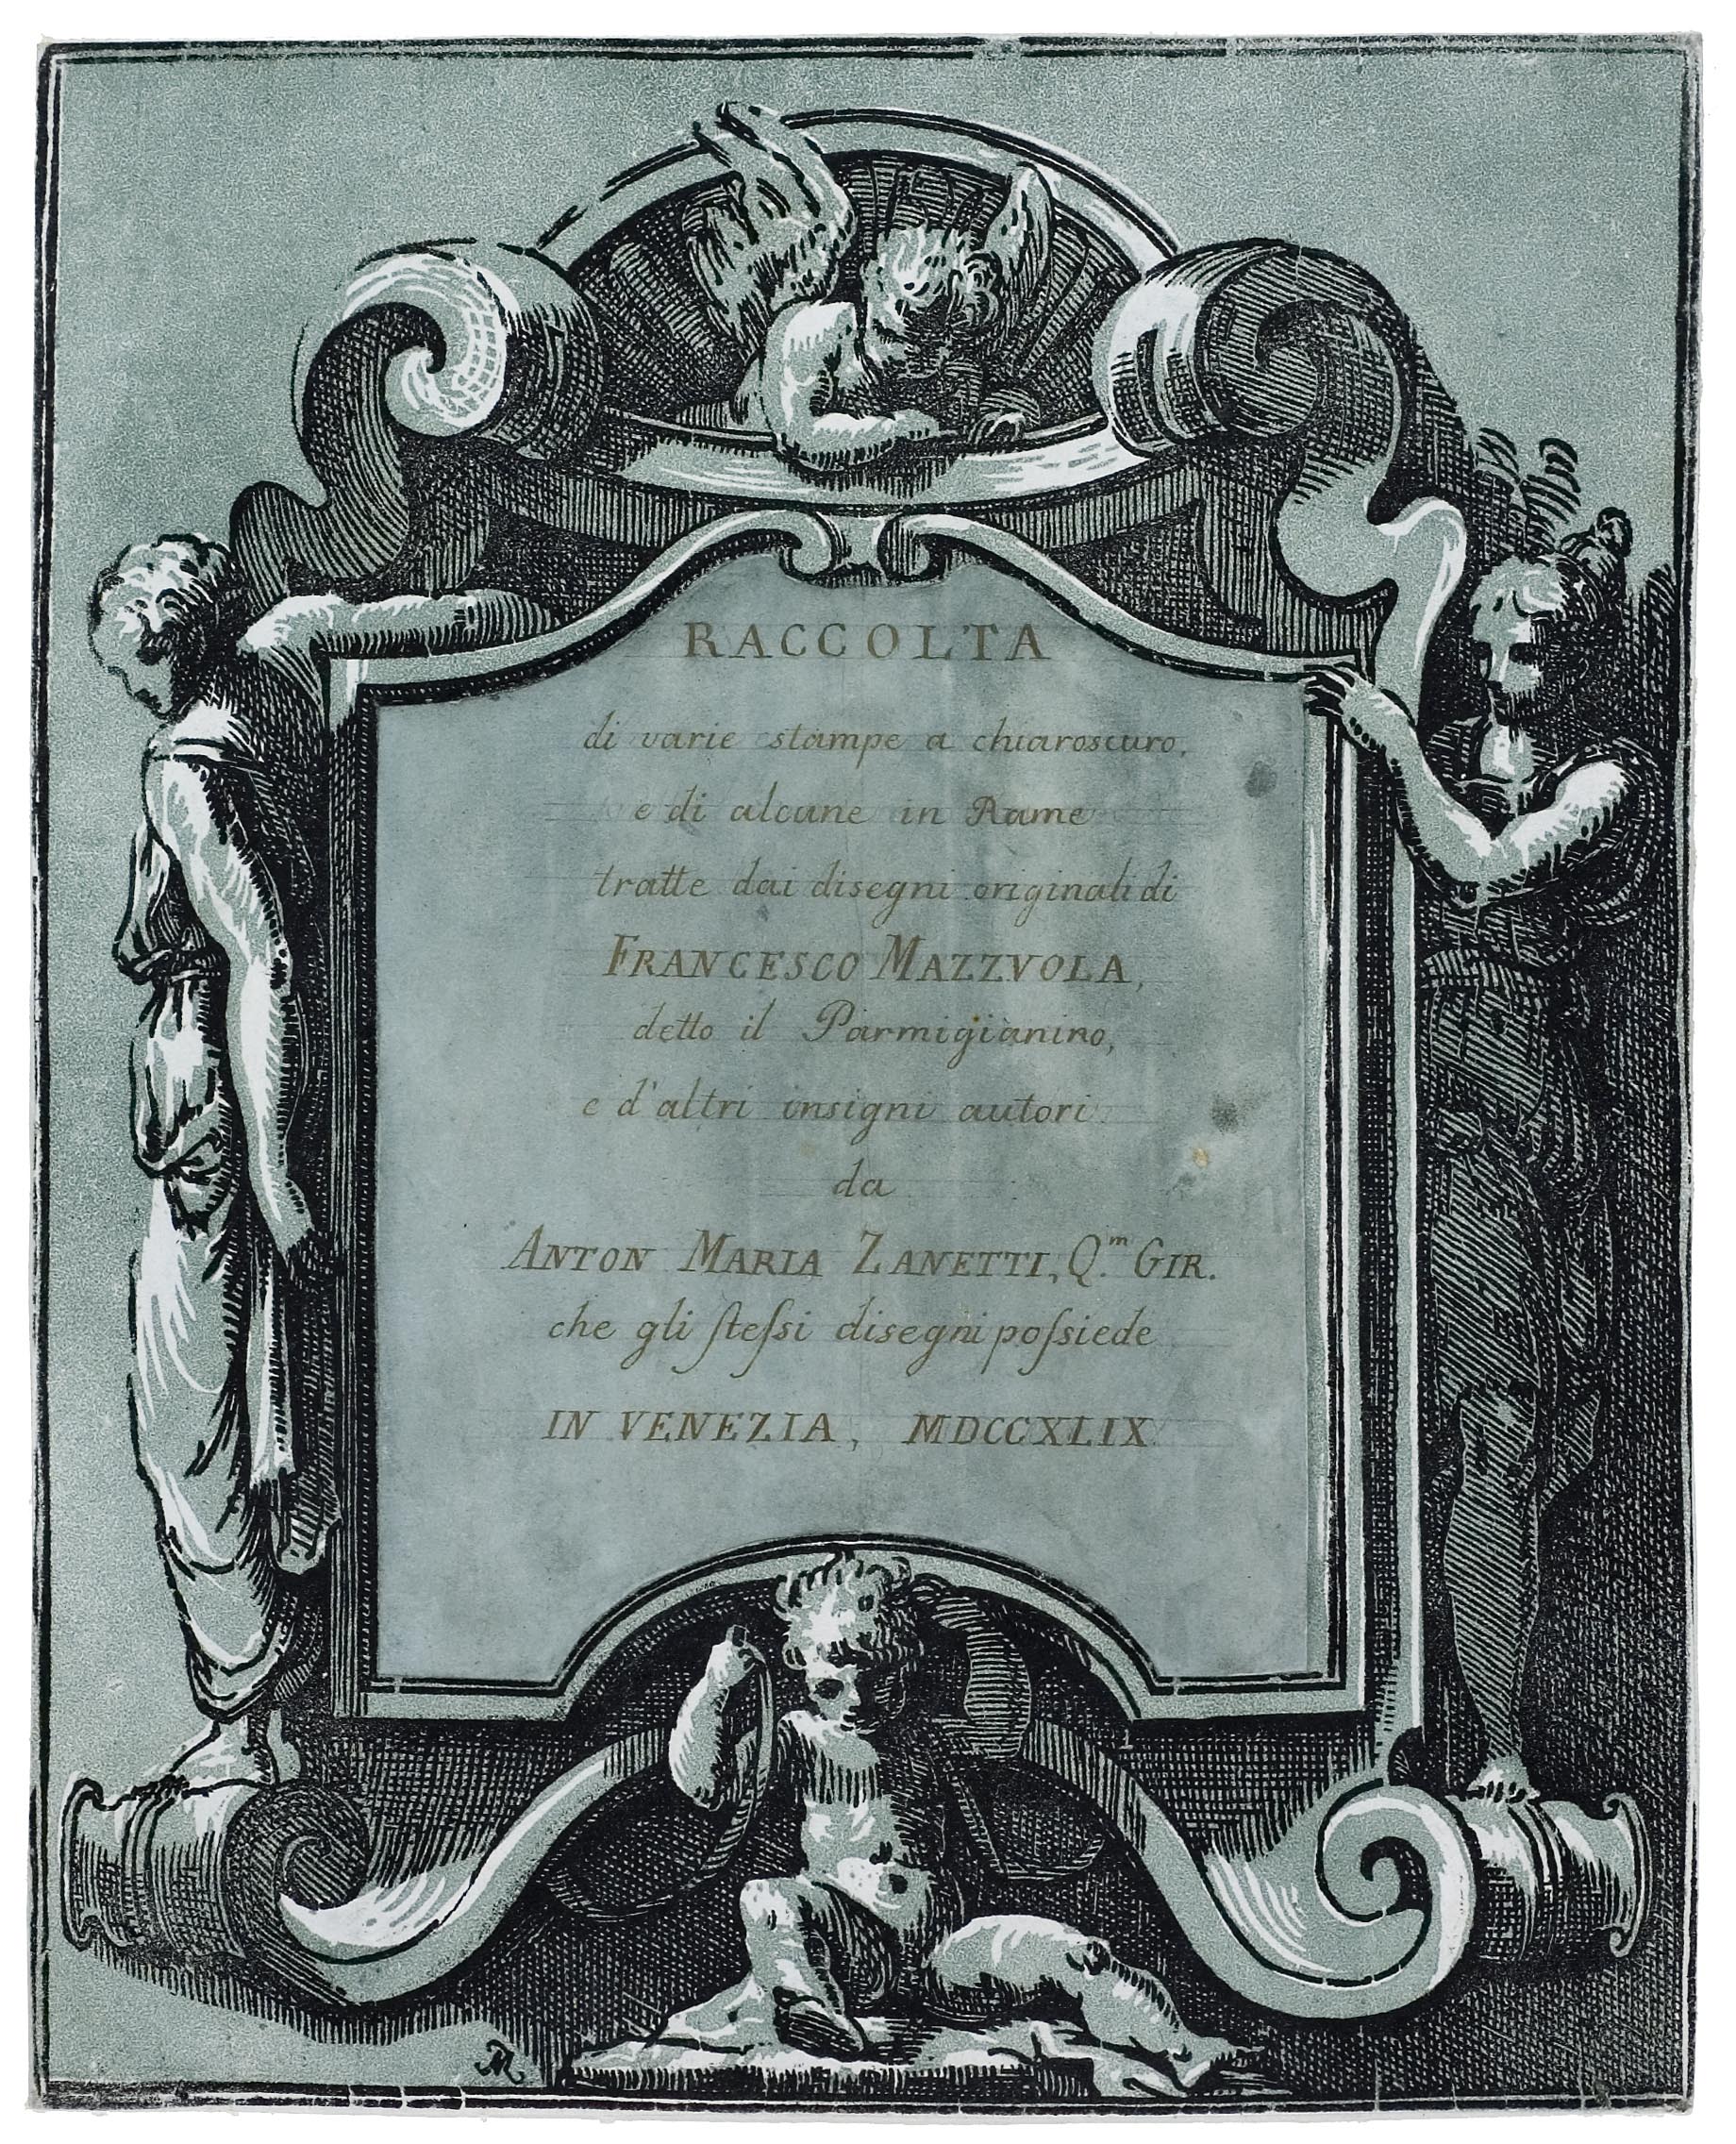 RACCOLTA
di varie stampe a chiaroscuro,
e di alcune in Rame
tratte dai disegni originali di
FRANCESCO MAZZVOLA,
detto il Parmigianino,
e d'altri insigni autori
da
ANTON MARIA ZANETTI, Q.ᵐ GIR.
che gli ſteſsi disegni poſsiede
IN VENEZIA, MDCCXLIX.